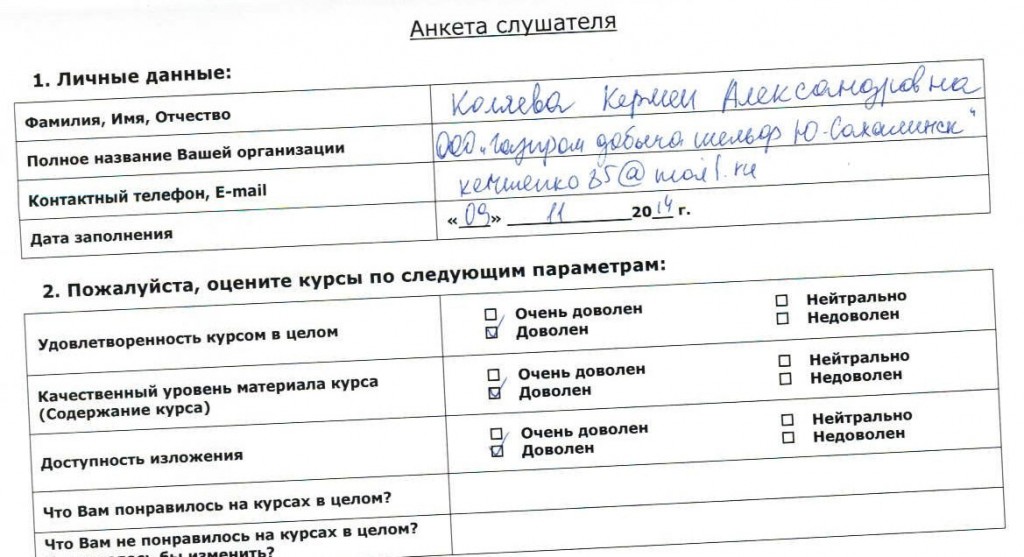 Анкета слушателя
1. Личные данные:
Фамилия, Имя, Отчество Коляева Кермен Александровна
Полное название Вашей организации ООО „Газпром добыча шельф Ю-Сахалинск“
Контактный телефон, E-mail @mail.ru
Дата заполнения «09» 11 2014 г.
2. Пожалуйста, оцените курсы по следующим параметрам:
Удовлетворенность курсом в целом ☐ Очень доволен ☐ Нейтрально
☑ Доволен ☐ Недоволен
Качественный уровень материала курса ☐ Очень доволен ☐ Нейтрально
(Содержание курса) ☑ Доволен ☐ Недоволен
Доступность изложения ☐ Очень доволен ☐ Нейтрально
☑ Доволен ☐ Недоволен
Что Вам понравилось на курсах в целом?
Что Вам не понравилось на курсах в целом?
бы изменить?